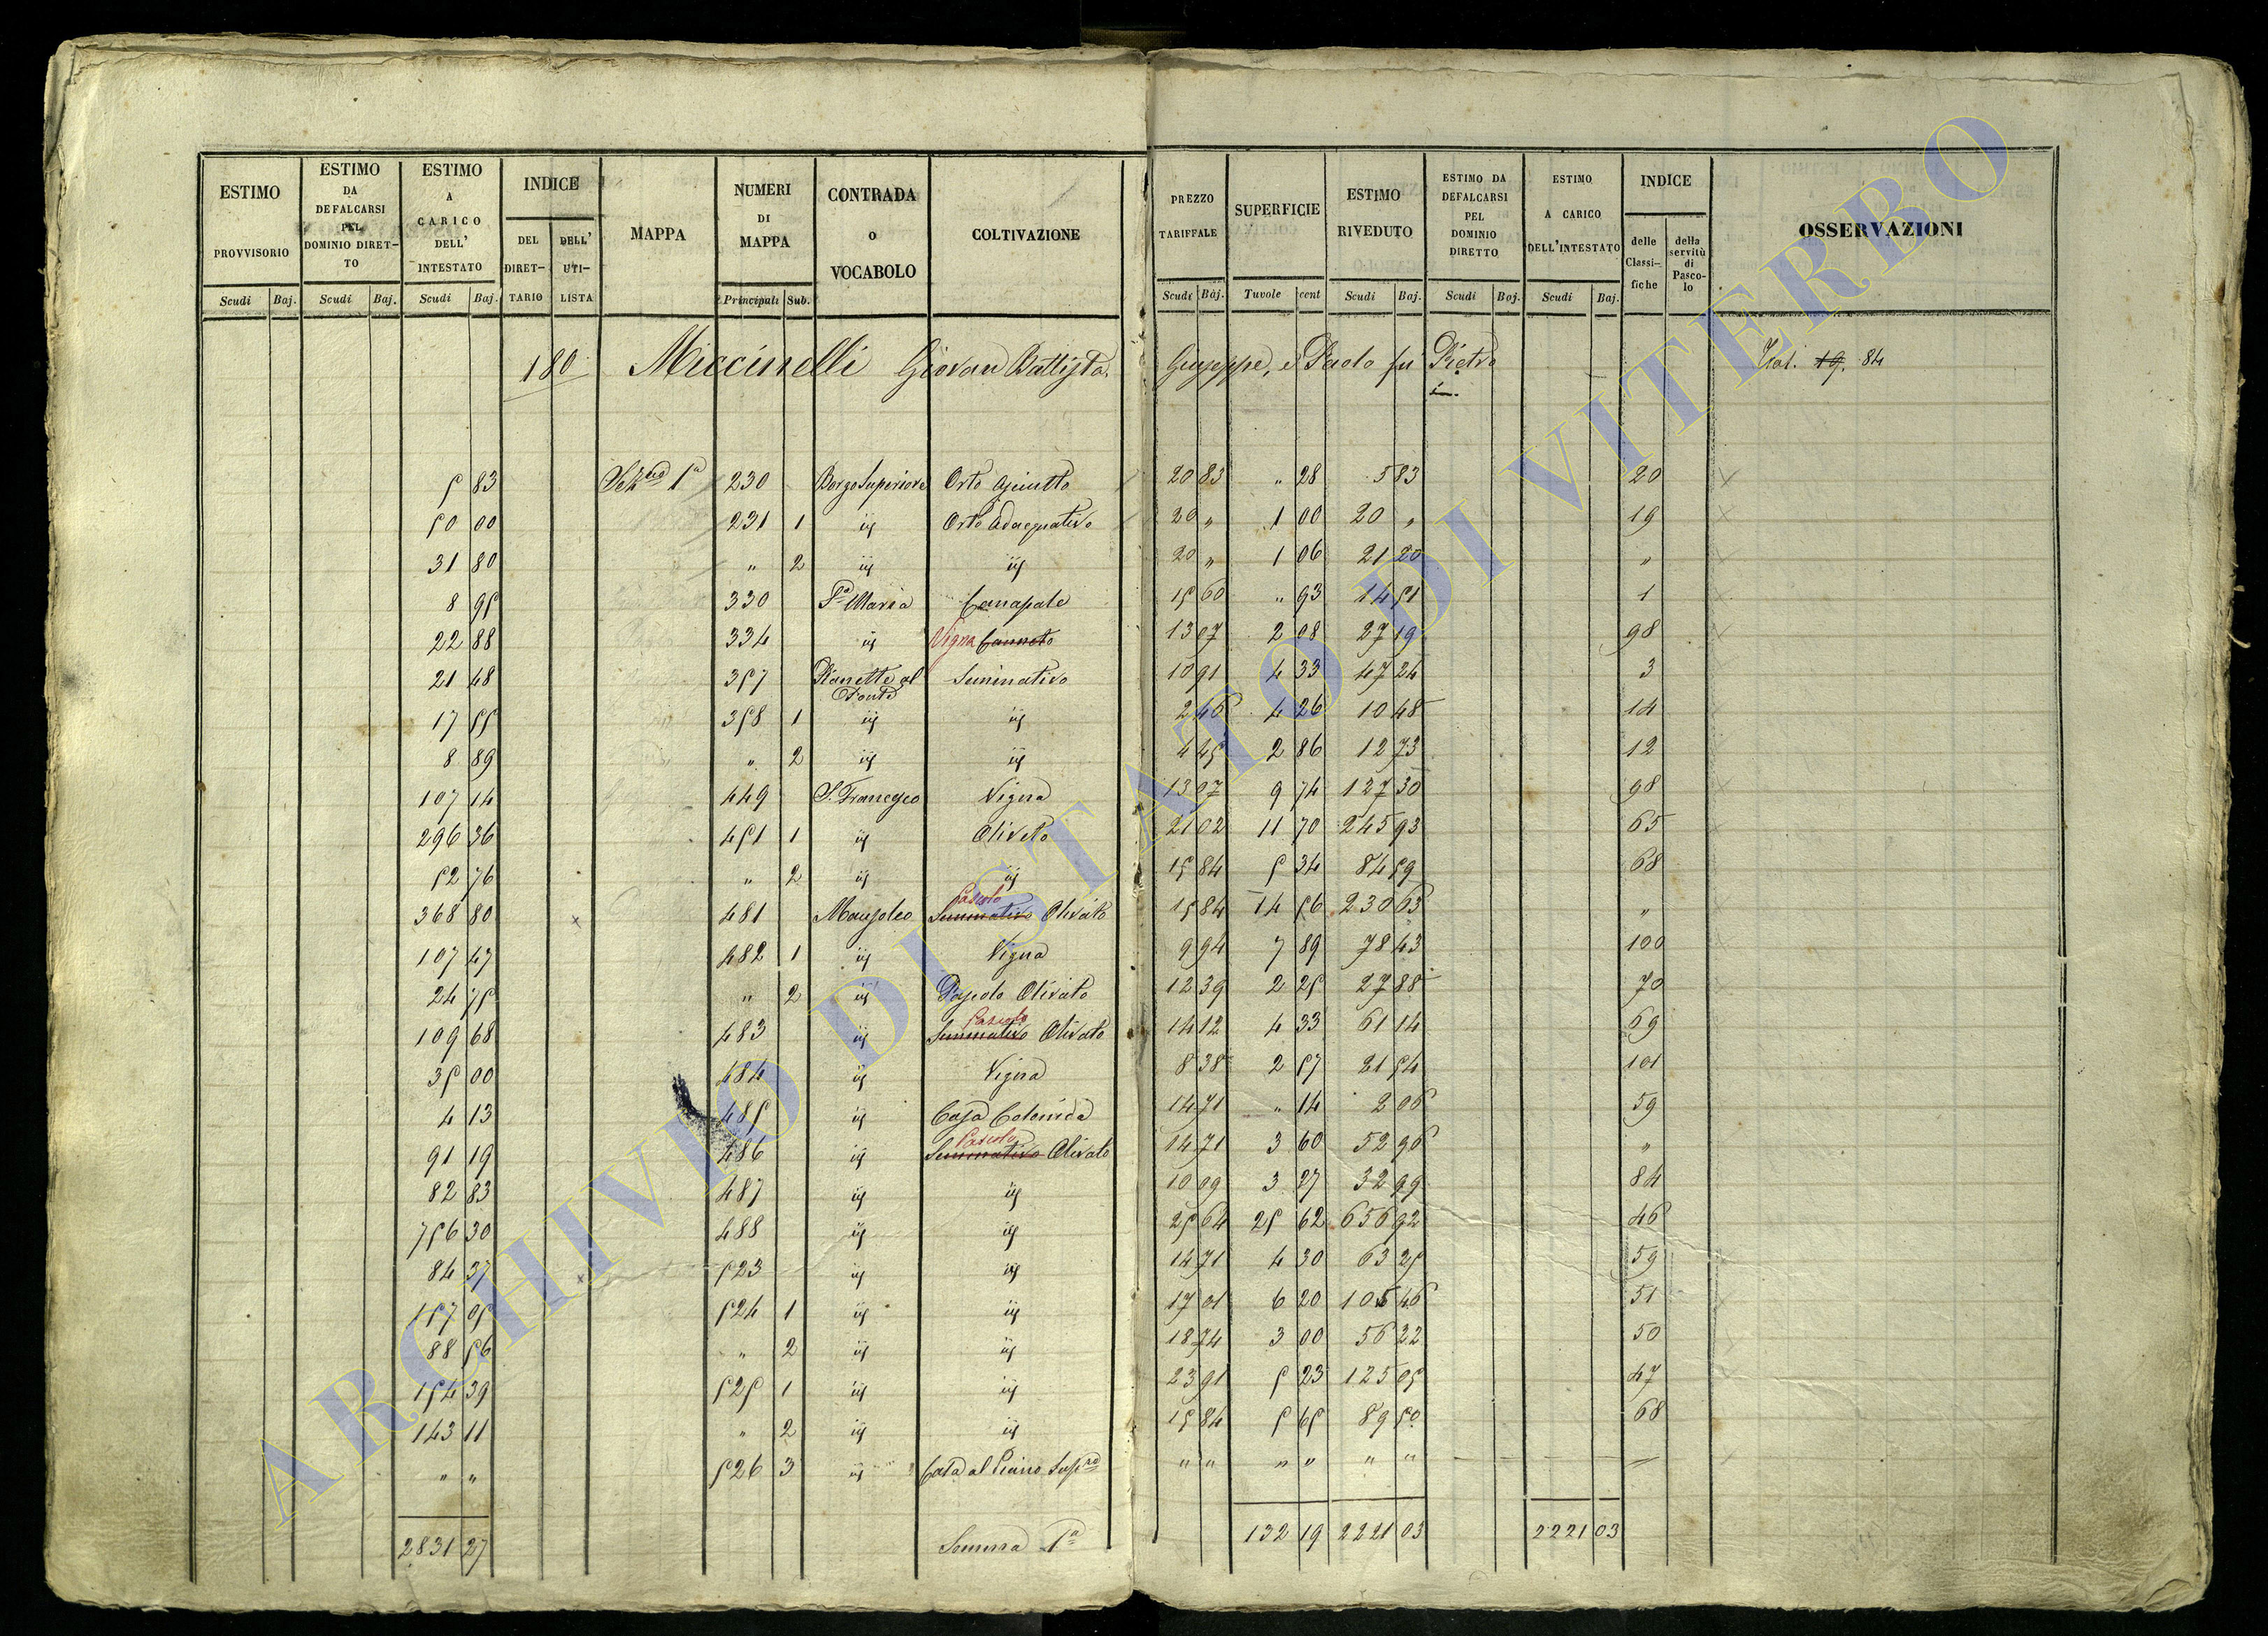 ESTIMO PROVVISORIO Scudi Baj. ESTIMO DA DEFALCARSI PEL DOMINIO DIRET-TO Scudi Baj. ESTIMO A CARICO DELL' INTESTATO Scudi Baj. INDICE DEL DIRET-TARIO DELL' UTI-LISTA MAPPA NUMERI DI MAPPA Principali Sub. CONTRADA o VOCABOLO COLTIVAZIONE PREZZO TARIFFALE Scudi Baj. SUPERFICIE Tavole cent ESTIMO RIVEDUTO Scudi Baj. ESTIMO DA DEFALCARSI PEL DOMINIO DIRETTO Scudi Baj. ESTIMO A CARICO DELL'INTESTATO Scudi Baj. INDICE delle Classi-fiche della servitù di Pasco-lo OSSERVAZIONI
180 Miccinelli Giovan Battista, Giuseppe, e Paolo fu Pietro 19. 84
5 83 1ª 230 Borgo Superiore Orto Asciutto 20 83 " 28 5 83 20
50 00 231 1 iij Orto Adacquativo 20 " 1 00 20 " 19
31 80 " 2 iij iij 20 " 1 06 21 20 "
8 95 330 Sª Maria Canapale 15 60 " 93 14 51 1
22 88 334 iij Vigna Canneto 13 07 2 08 27 19 98
21 48 357 Pianette al Seminativo 10 91 4 33 47 24 3
17 55 358 1 iij iij 2 46 4 26 10 48 14
8 89 " 2 iij iij 4 45 2 86 12 73 12
107 14 449 S. Francesco Vigna 13 07 9 74 127 30 98
296 36 451 1 iij Oliveto 21 02 11 70 245 93 65
52 76 " 2 iij iij 15 84 5 34 84 59 68
368 80 481 Mausoleo Pascolo Seminativo Olivato 15 84 14 56 230 63 "
107 47 482 1 iij Vigna 9 94 7 89 78 43 100
24 75 " 2 iij Pascolo Olivato 12 39 2 25 27 88 70
109 68 483 iij Pascolo Seminativo Olivato 14 12 4 33 61 14 69
35 00 484 iij Vigna 8 38 2 57 21 54 101
4 13 485 iij Casa Colonica 14 71 " 14 2 06 59
91 19 486 iij Pascolo Seminativo Olivato 14 71 3 60 52 96 "
82 83 487 iij iij 10 09 3 27 32 99 84
756 30 488 iij iij 25 64 25 62 656 92 46
84 37 523 iij iij 14 71 4 30 63 25 59
157 05 524 1 iij iij 17 01 6 20 105 46 51
88 56 " 2 iij iij 18 74 3 00 56 22 50
154 39 525 1 iij iij 23 91 5 23 125 05 47
143 11 " 2 iij iij 15 84 5 65 89 50 68
" " 526 3 iij Casa al Piano " " " " " "
2831 27 Somma 1ª 132 19 2221 03 2221 03
ARCHIVIO DI STATO DI VITERBO